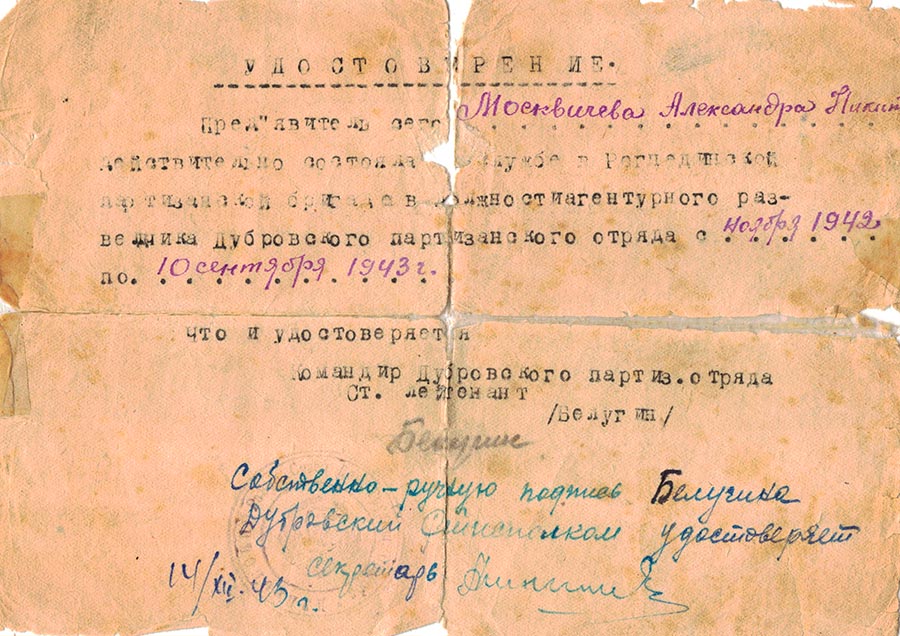 УДОСТОВЕРЕНИЕ.
Пред"явитель сего Москвичева Александра Никит
действительно состояла службе в Рогнединской
партизанской бригаде в должностиагентурного раз-
ведчика Дубровского партизанского отряда с ноября 1942
по. 10 сентября 1943 г.
Что и удостоверяется
Командир Дубровского партиз.отряда
Ст. лейтенант
/Белугин/
Белугин
Собственно-ручную подпись Белугина
Дубровский удостоверяет
секретарь
14/XII-43 г.